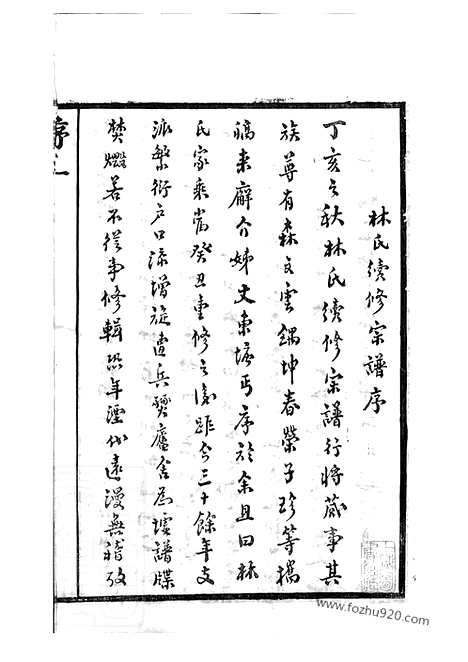 林氏續修宗譜序
丁亥之秋林氏續修宗譜行將蕆事其
族尊有森文雲錫坤春榮子珍等攜
稿來廨介姊丈東塘丐序於余且曰林
氏家乘當癸丑重修之後距今三十餘年支
派繁衍戶口添增旋遭兵燹廬舍為墟譜牒
焚燬若不從事修輯恐年湮代遠漫無稽攷
序一
www.fozhu920.com